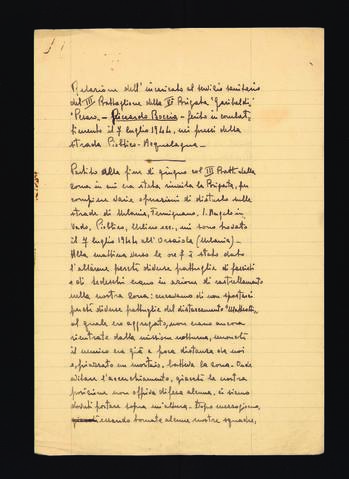 Relazione dell'incaricato al servizio sanitario
del III Battaglione della Vª Brigata "Garibaldi"
"Pesaro" - Riccardo Boccia - ferito in combat-
timento il 7 luglio 1944 nei pressi della
strada Piobbico - Acqualagna -
Partito alla fine di giugno col III Batt. dalla
zona in cui era stata riunita la Brigata, per
compiere varie operazioni di disturbo sulle
strade di Urbania, Fermignano, S. Angelo in
Vado, Piobbico, Urbino ecc., mi sono trovato
il 7 luglio 1944 all'Orsaiola (Urbania) -
Alla mattina verso le ore è stato dato
l'allarme perché diverse pattuglie di fascisti
e di tedeschi erano in azione di rastrellamento
nella nostra zona: cercavamo di non spostarci
perché diverse pattuglie del distaccamento
al quale ero aggregato, non erano ancora
rientrate dalla missione notturna, nonché
il nemico era già a poca distanza da noi
e, piazzato un mortaio, batteva la zona. Onde
evitare l'accerchiamento, giacché la nostra
posizione non offriva difesa alcuna, ci siamo
dovuti portare sopra un'altura. Dopo mezzogiorno,
essendo tornate alcune nostre squadre,